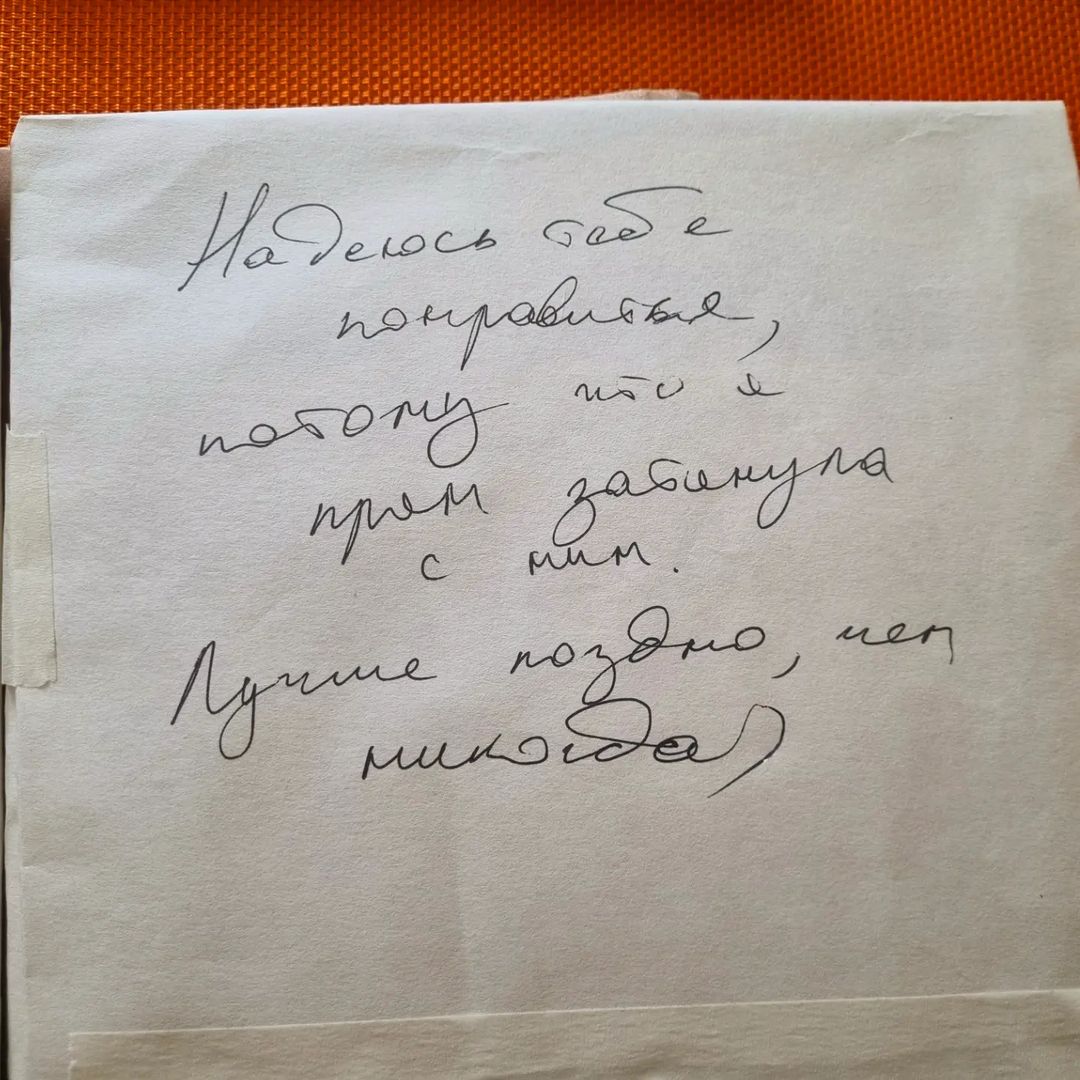 Надеюсь тебе
понравиться,
потому что я
прям затянула
с ним.
Лучше поздно, чем
никогда)